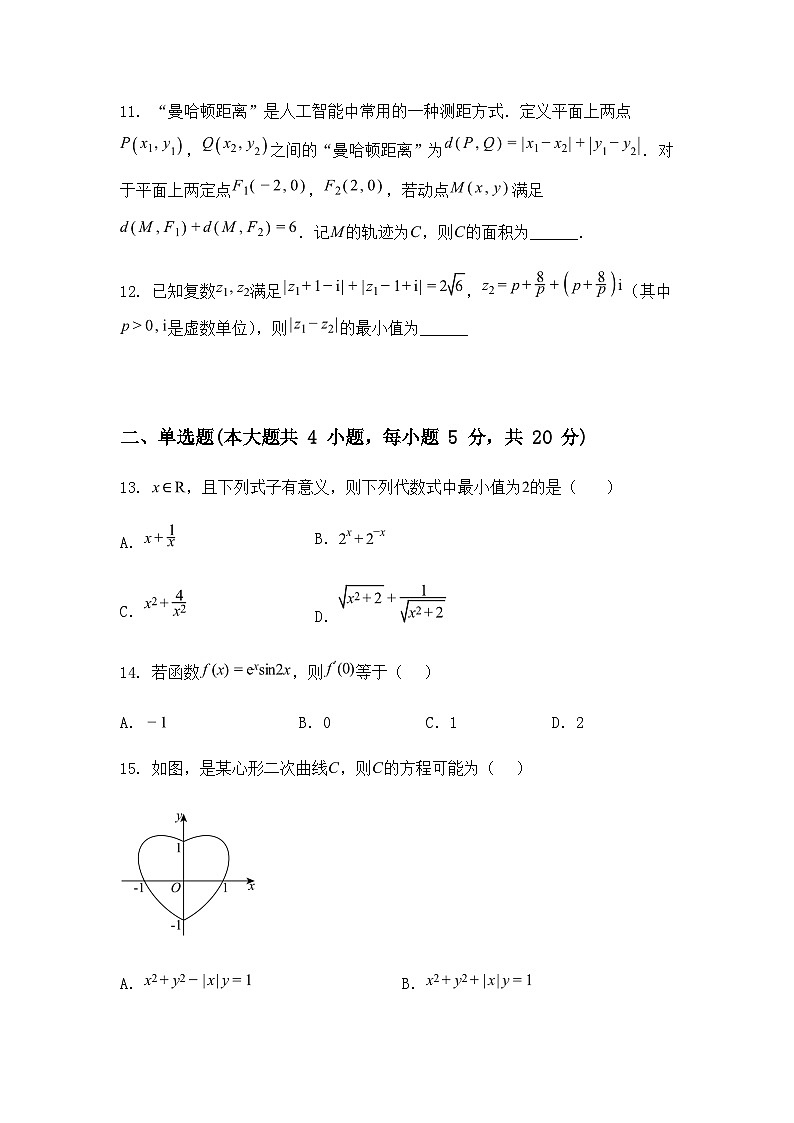 11. “曼哈顿距离”是人工智能中常用的一种测距方式．定义平面上两点
P(x₁, y₁)，Q(x₂, y₂)之间的“曼哈顿距离”为d(P, Q) = |x₁−x₂| + |y₁−y₂|．对
于平面上两定点F₁(−2, 0)，F₂(2, 0)，若动点M(x, y)满足
d(M, F₁)+d(M, F₂) = 6．记M的轨迹为C，则C的面积为______．
12. 已知复数z₁, z₂满足|z₁+1−i| + |z₁−1+i| = 2√6，z₂ = p + 8/p + (p + 8/p)i（其中
p > 0, i是虚数单位），则|z₁−z₂|的最小值为______
二、单选题(本大题共 4 小题，每小题 5 分，共 20 分)
13. x∈R，且下列式子有意义，则下列代数式中最小值为2的是（　　）
A. x + 1/x B. 2ˣ + 2⁻ˣ
C. x² + 4/x² D. √(x²+2) + 1/√(x²+2)
14. 若函数f(x) = eˣsin2x，则f′(0)等于（　）
A. −1 B. 0 C. 1 D. 2
15. 如图，是某心形二次曲线C，则C的方程可能为（　）
y
1
-1 O 1 x
-1
A. x² + y² − |x|y = 1 B. x² + y² + |x|y = 1